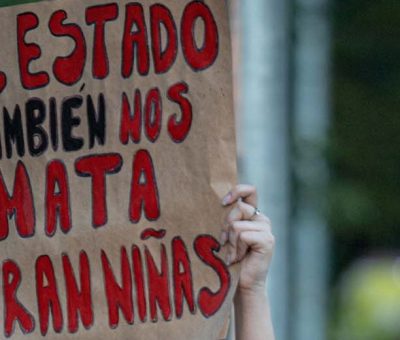 L ESTADO
AMBIÉN NOS
MATA
ERAN NIÑAS